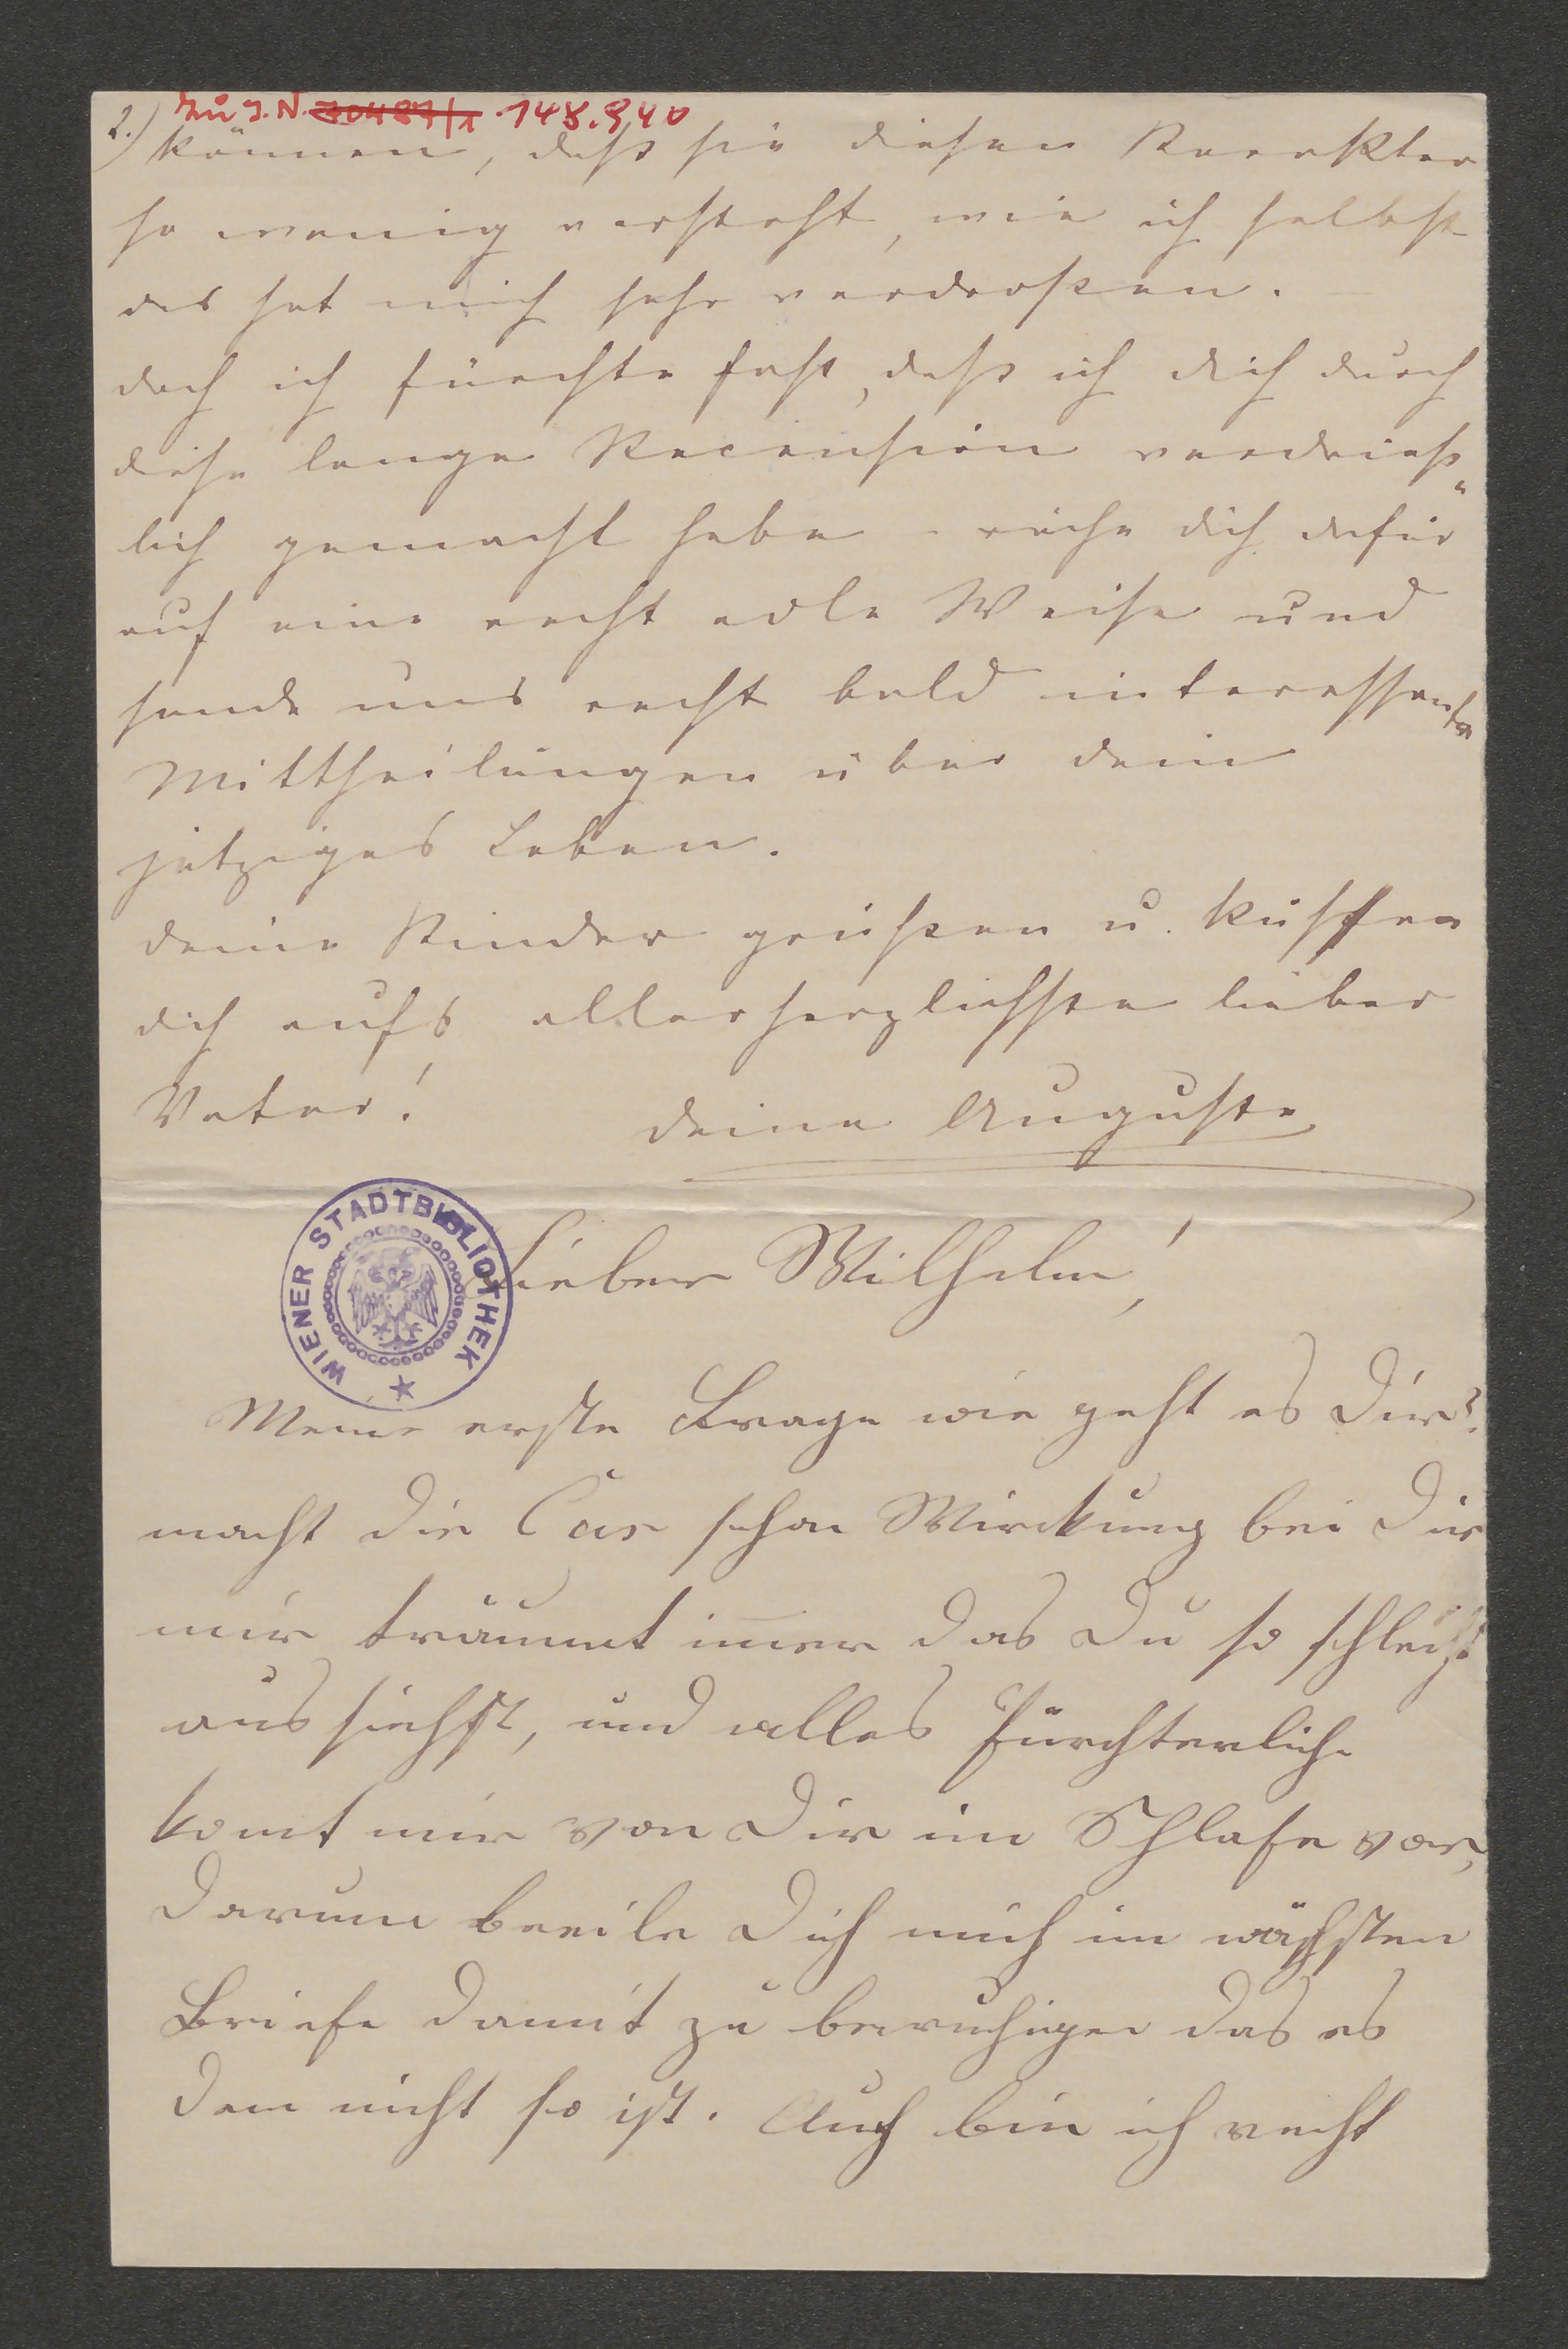 2.) Zu J.N. 70487/1 148.940
können, daß sie diesen Karakter
so wenig versteht, wie ich selbst
das hat mich sehr verdroßen.
doch ich fürchte fast, daß ich dich durch
diese lange Recension verdrieß-
lich gemacht habe - räche dich dafür
auf eine recht edle Weise und
sende uns recht bald interessante
Mittheilungen über dein
jetziges Leben.
deine Kinder grüßen u. küssen
dich aufs allerherzlichste lieber
Vater!
deine Auguste
WIENER STADTBIBLIOTHEK
Lieber Wilhelm!
Meine erste Frage wie geht es Dir?
macht die Cur schon Wirckung bei Dir
mir träumt im̅er das Du so schlecht
aus siehst, und alles fürchterliche
komt mir von Dir im Schlafe vor,
darum beeile Dich mich im nächsten
Briefe damit zu beruhigen das es
dem nicht so ist. Auch bin ich recht